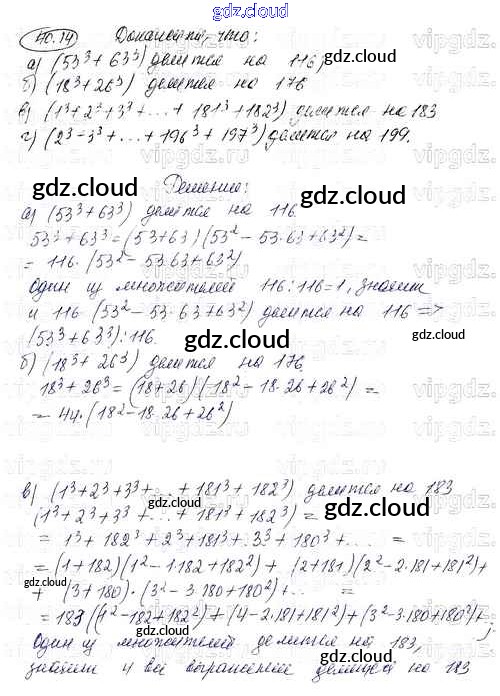 gdz.cloud
40.14 Доказать, что:
а) (53³ + 63³) делится на 116;
б) (18³ + 26³) делится на 176
в) (1³ + 2³ + 3³ + ... + 181³ + 182³) делится на 183
г) (2³ - 3³ + ... + 196³ + 197³) делится на 199.
Решение:
а) (53³ + 63³) делится на 116.
53³ + 63³ = (53 + 63)(53² - 53·63 + 63²) =
= 116·(53² - 53·63 + 63²)
Один из множителей 116:116=1, значит
и 116·(53² - 53·63 + 63²) делится на 116 =>
(53³ + 63³):116.
б) (18³ + 26³) делится на 176
18³ + 26³ = (18 + 26)(18² - 18·26 + 26²) =
= 44·(18² - 18·26 + 26²)
в) (1³ + 2³ + 3³ + ... + 181³ + 182³) делится на 183
(1³ + 2³ + 3³ + ... + 181³ + 182³) =
= 1³ + 182³ + 2³ + 181³ + 3³ + 180³ + ... =
= (1 + 182)(1² - 1·182 + 182²) + (2 + 181)(2² - 2·181 + 181²) +
+ (3 + 180)·(3² - 3·180 + 180²) + ... =
= 183((1² - 182 + 182²) + (4 - 2·181 + 181²) + (3² - 3·180 + 180²) + ;
Один из множителей делится на 183,
значит и всё выражение делится на 183